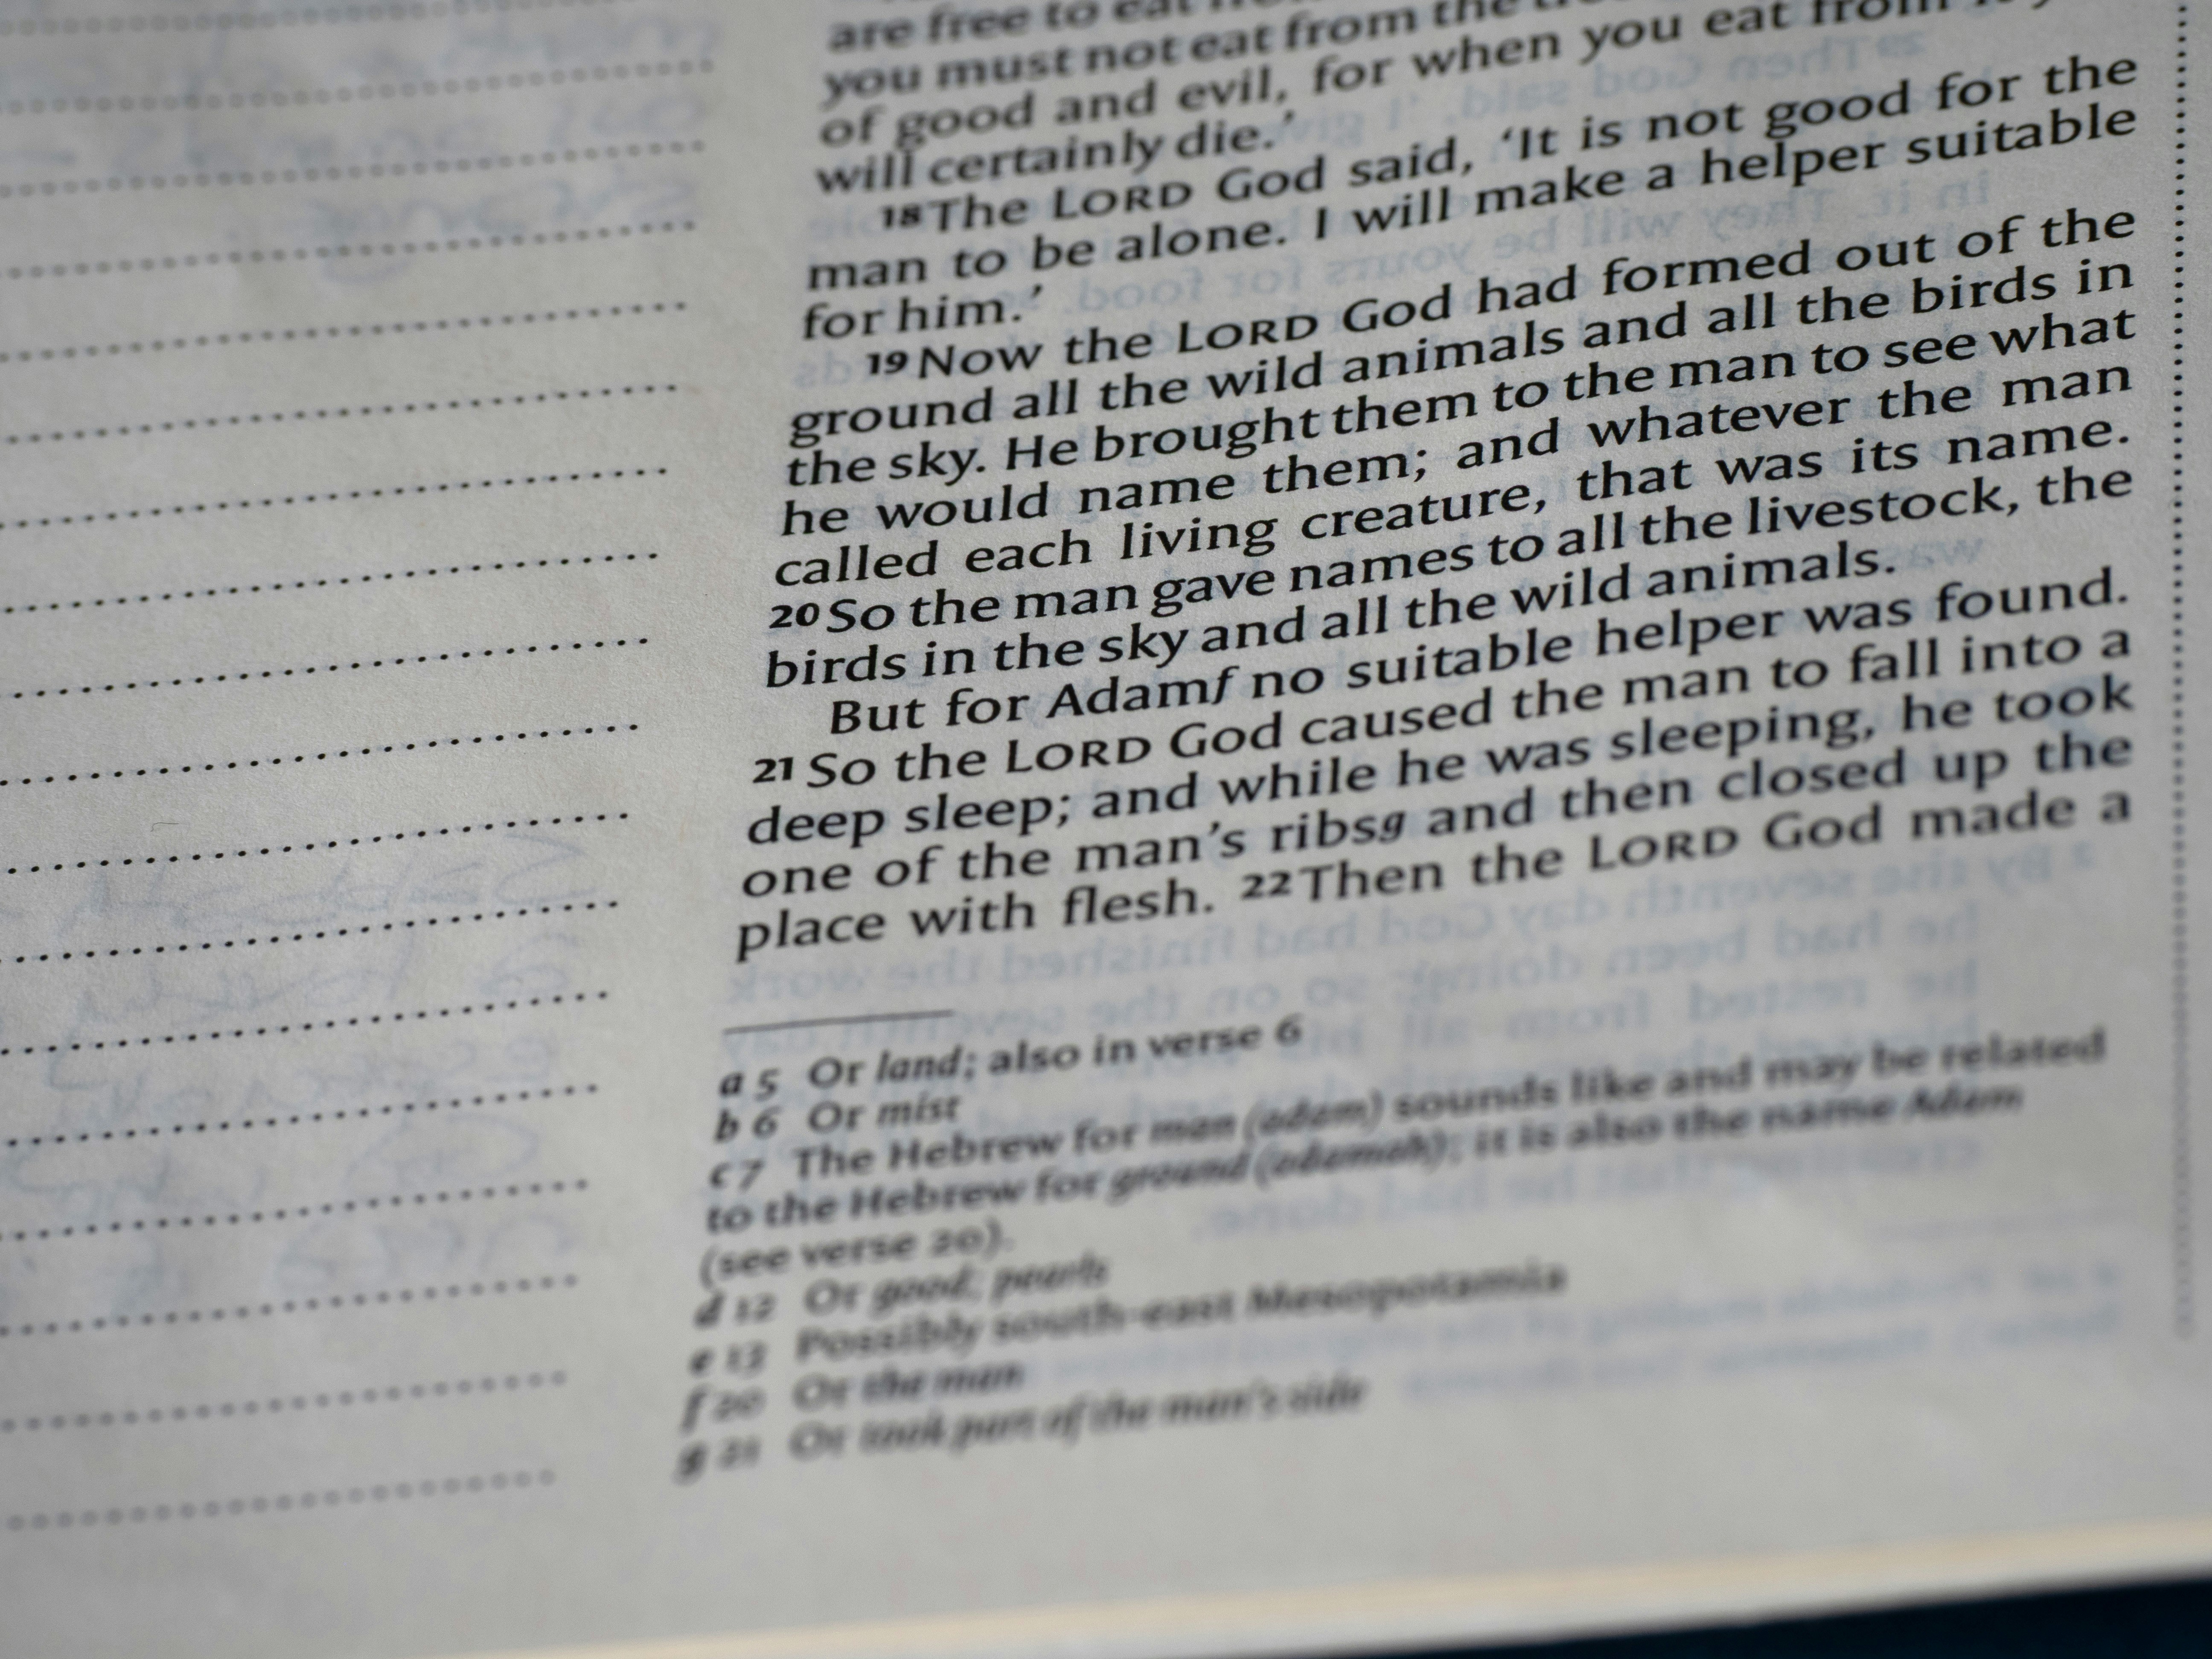 are free to eat
you must not eat from the
of good and evil, for when you eat from
will certainly die.’
18 The LORD God said, ‘It is not good for the
man to be alone. I will make a helper suitable
for him.’
19 Now the LORD God had formed out of the
ground all the wild animals and all the birds in
the sky. He brought them to the man to see what
he would name them; and whatever the man
called each living creature, that was its name.
20 So the man gave names to all the livestock, the
birds in the sky and all the wild animals.
But for Adamf no suitable helper was found.
21 So the LORD God caused the man to fall into a
deep sleep; and while he was sleeping, he took
one of the man’s ribsg and then closed up the
place with flesh. 22 Then the LORD God made a
a 5 Or land; also in verse 6
b 6 Or mist
c 7 The Hebrew for man (adam) sounds like and may be related
to the Hebrew for ground (adamah); it is also the name Adam
(see verse 20).
d 12 Or good; pearls
e 13 Possibly south-east Mesopotamia
f 20 Or the man
g 21 Or took part of the man’s side